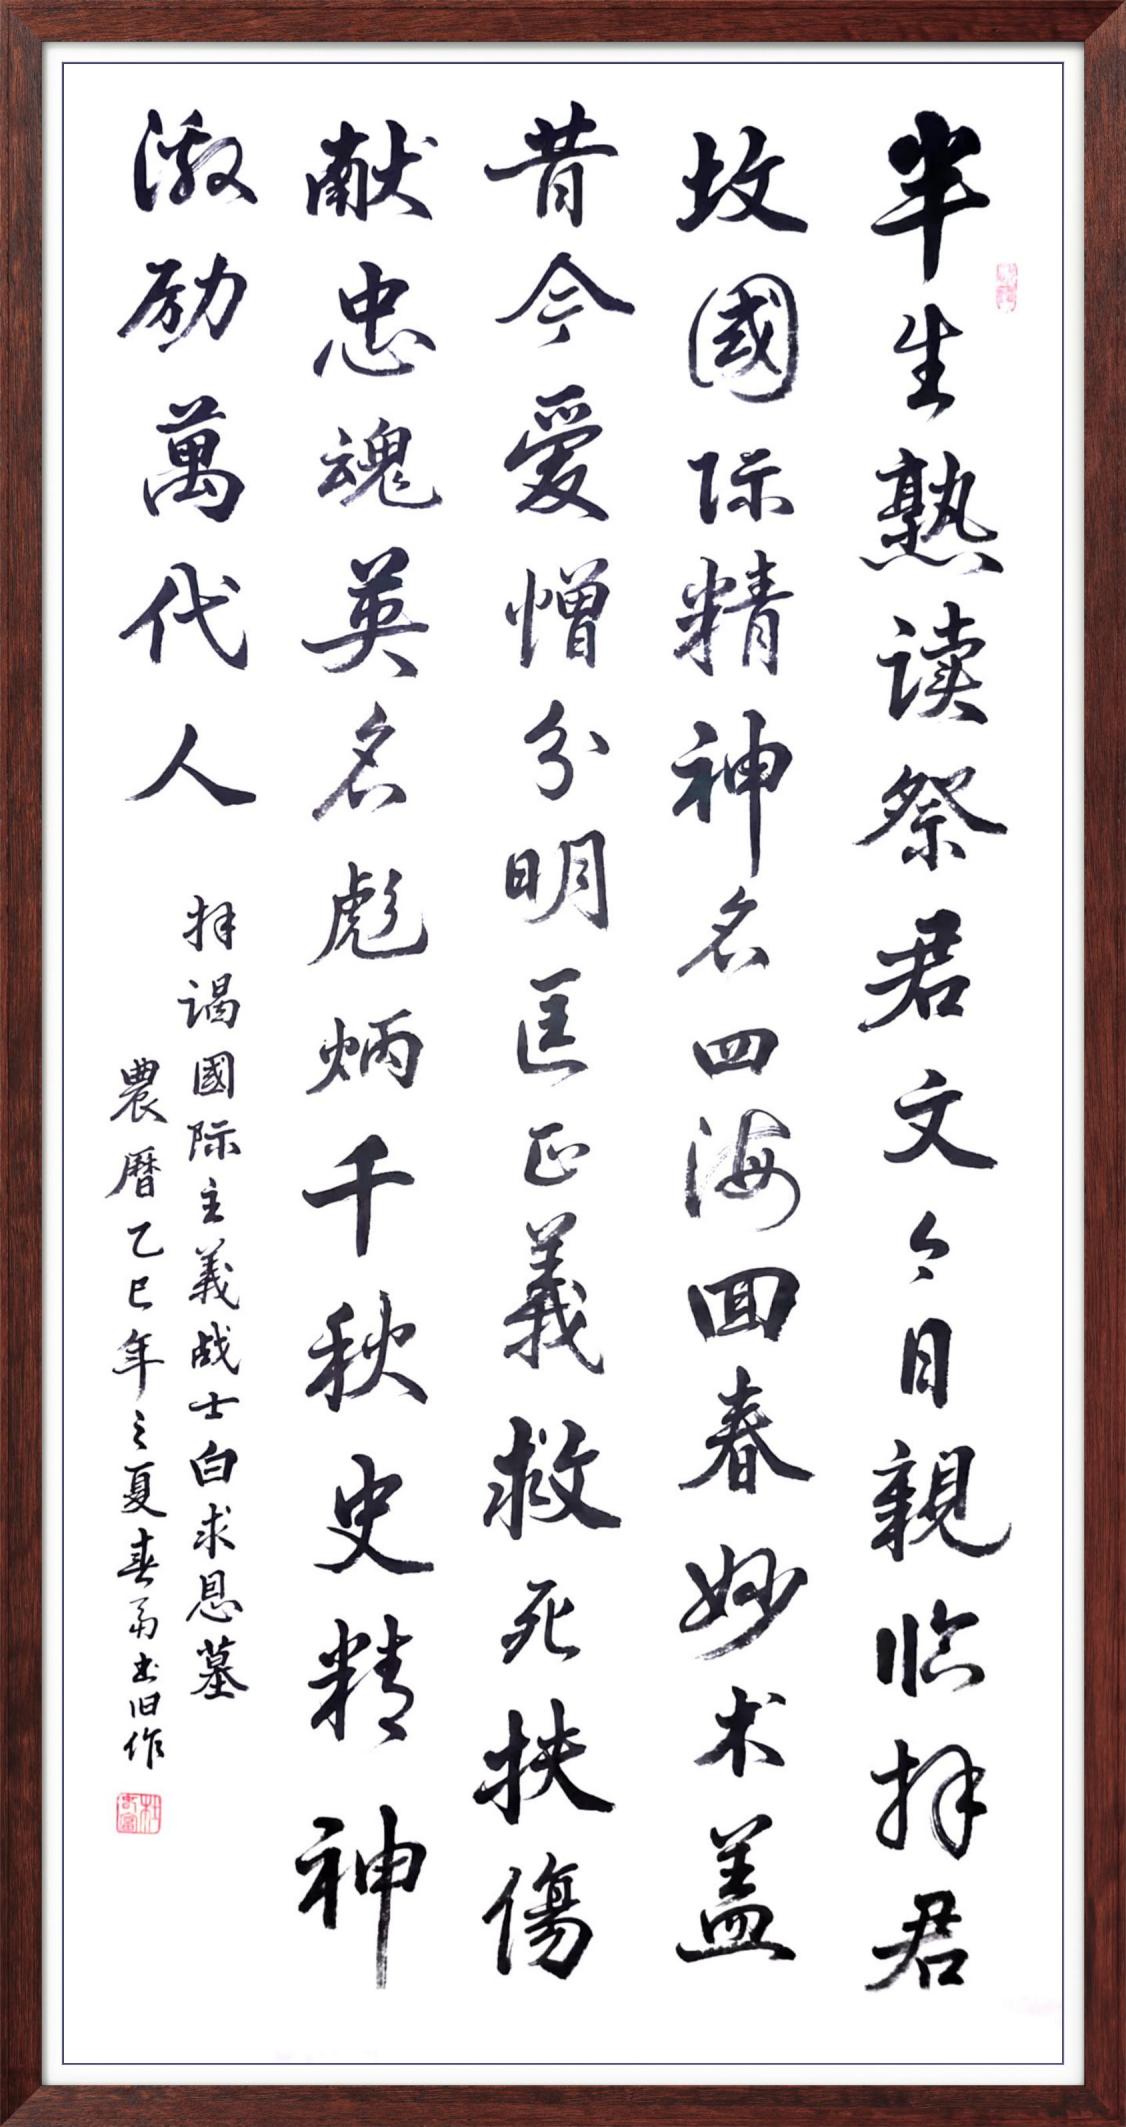 半生熟读祭君文今日親临拜君
坟國际精神名四海回春妙术盖
昔今爱憎分明匡正義救死扶傷
献忠魂英名彪炳千秋史精神
激励萬代人
拜谒國际主義战士白求恩墓
農曆乙巳年之夏书旧作